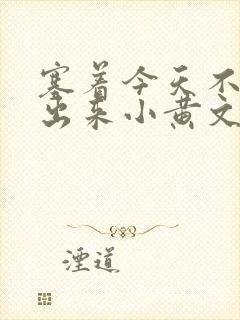 塞着今天不
出来小黄文
湮道